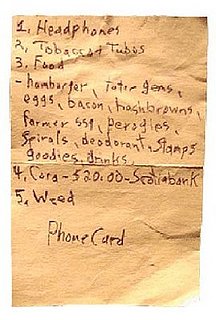 1. Headphones
2. Tobacco + Tubes
3. Food
- hamburger, tater gems,
eggs, bacon, hashbrowns,
farmer ssg, perogies,
spirals, deodorant, stamps
goodies, drinks.
4. Cora - $20.00 - Scotiabank
5. Weed
Phone Card